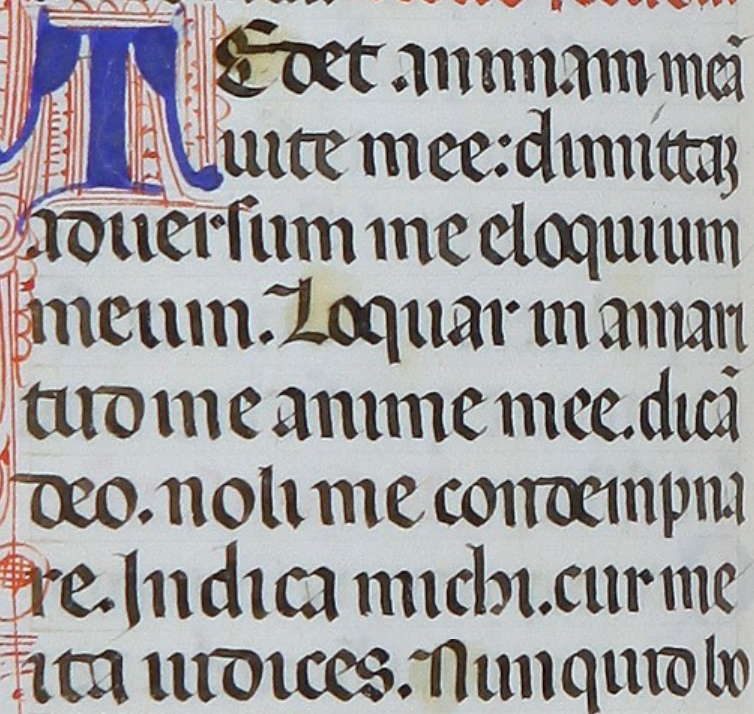 TEdet animam meā
uite mee: dimittaꝫ
aduersum me eloquium
meum. Loquar in amari
tudine anime mee. dicā
deo. noli me condempna
re. Indica michi. cur me
ita iudices. Nunquid bo